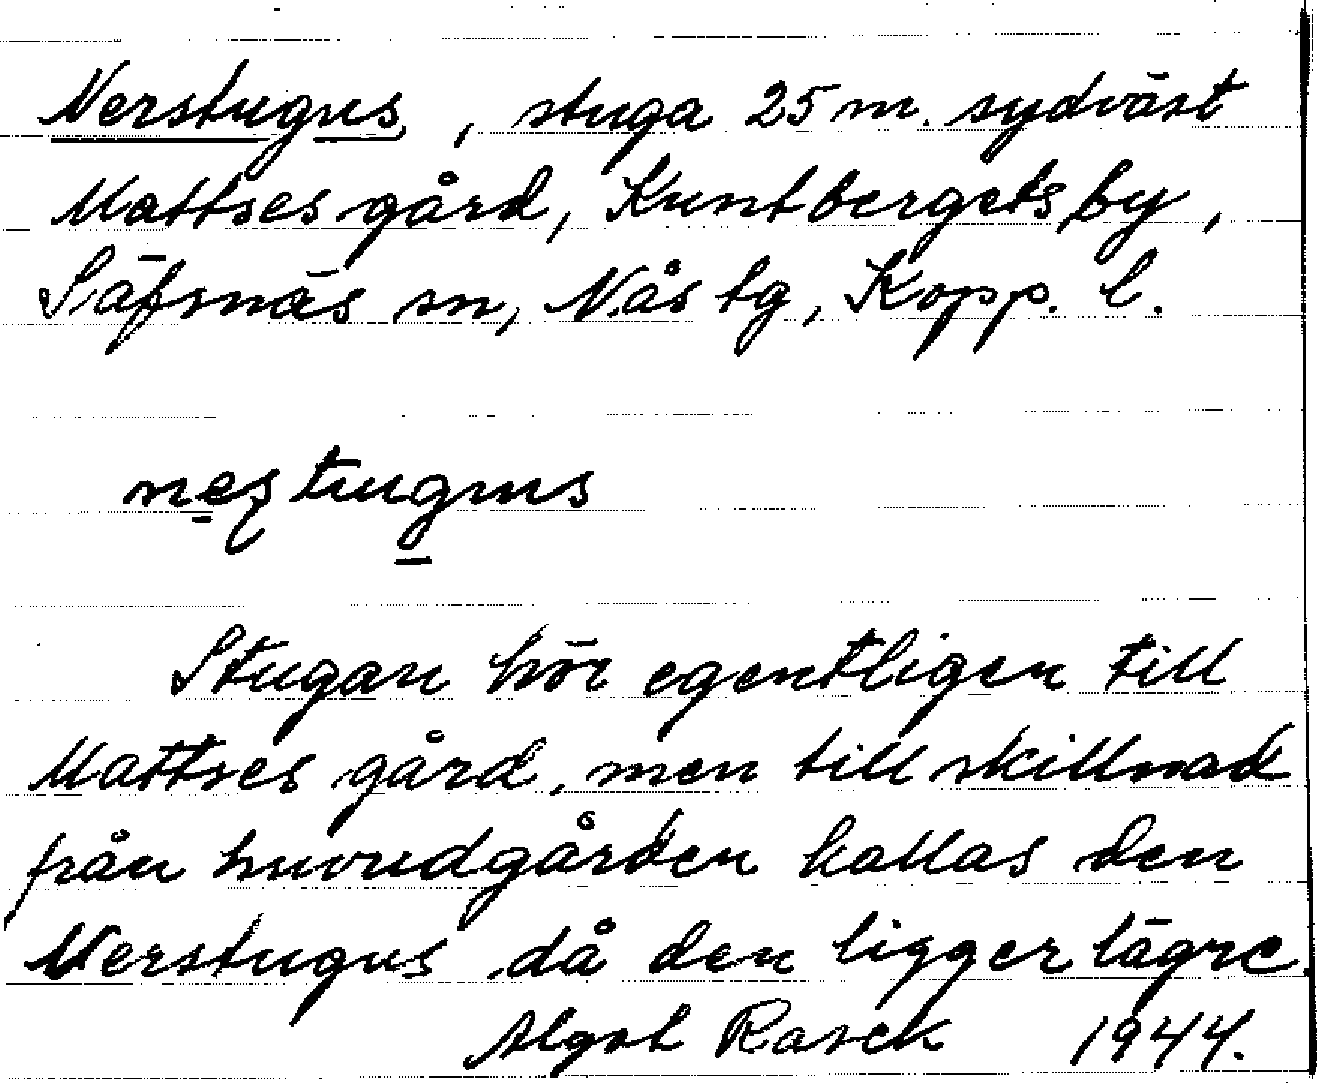 Nerstugus, stuga 25 m. sydväst
Mattses gård, Kuntbergets by,
Säfsnäs sn, Nås tg, Kopp. l.
nes̨tugus
Stugan hör egentligen till
Mattses gård, men till skillnad
från huvudgården kallas den
Nerstugus, då den ligger lägre.
Algot Rasck 1944.